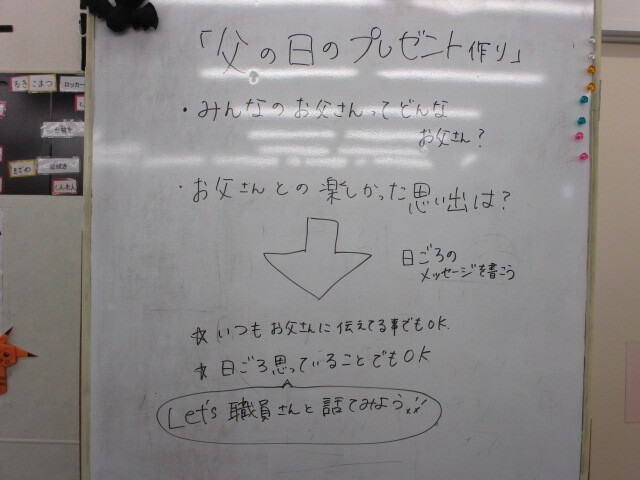 「父の日のプレゼント作り」
・みんなのお父さんってどんな
お父さん？
・お父さんとの楽しかった思い出は？
日ごろの
メッセージを書こう
☆いつもお父さんに伝えてる事でもOK.
☆日ごろ思っていることでもOK
Let's 職員さんと話てみよう!!
こまつ
ロッカー